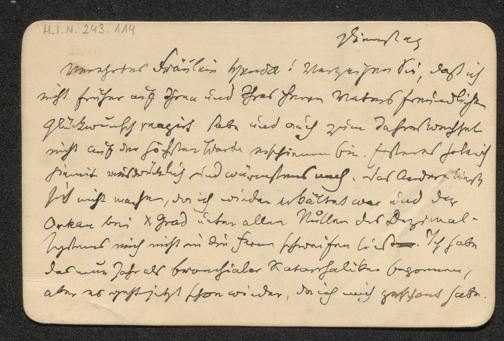 H.I.N. 243.114
Dienstag
Verehrtes Fräulein Gerda! Verzeihen Sie, daß ich
nicht früher auf Ihren und Ihres Herrn Vaters freundlichen
Glückwunsch reagirt habe und auch zum Jahreswechsel
nicht auf der höchsten Warte erschienen bin. Ersteres hole ich
hiemit ausdrücklich und wärmstens nach. Das Andere ließ
sich nicht machen, da ich wieder erkältet war und der
Orkan bei X Grad unter allen Nullen des Dezimal-
systems mich nicht in die Ferne schweifen ließ. Ich habe
das neue Jahr als bronchialer Katarrhaliker begonnen,
aber es geht jetzt schon wieder, da ich mich geschont habe.